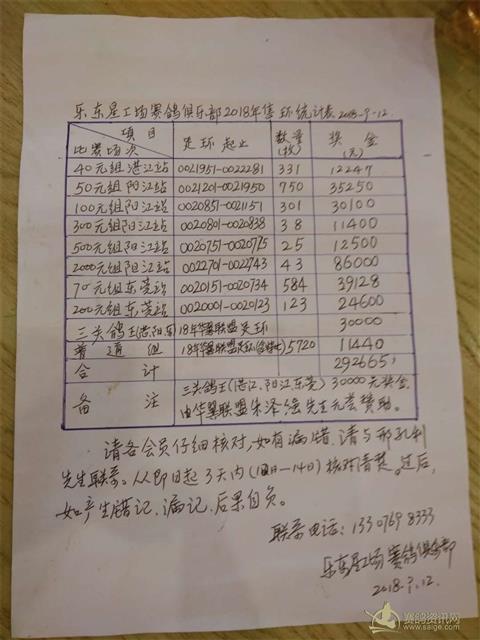 乐东星工场赛鸽俱乐部2018年售环统计表 2018-9-12.
项目 比赛场次 足环起止 数量(枚) 奖金(元)
40元组湛江站 0021951-0022281 331 12247
50元组阳江站 0021201-0021950 750 35250
100元组阳江站 0020851-0021151 301 30100
300元组阳江站 0020801-0020838 38 11400
500元组阳江站 0020751-0020775 25 12500
2000元组阳江站 0022701-0022743 43 86000
70元组东莞站 0020151-0020734 584 39128
200元组东莞站 0020001-0020123 123 24600
三关鸽王(湛.阳.东) 18年华翼联盟足环 30000
普通组 18年华翼联盟足环 5720 11440
合计 292665
备注 三关鸽王(湛江.阳江东莞)30000元奖金
由华翼联盟朱泽强先生无尝赞助。
请各会员仔细核对,如有漏错,请与邢孔利
先生联系。从即日起3天内(12日—14日)核对清楚。过后,
如产生错记.漏记.后果自负。
联系电话:13307698333
乐东星工场赛鸽俱乐部
2018.9.12.
赛鸽资讯网
www.saige.com